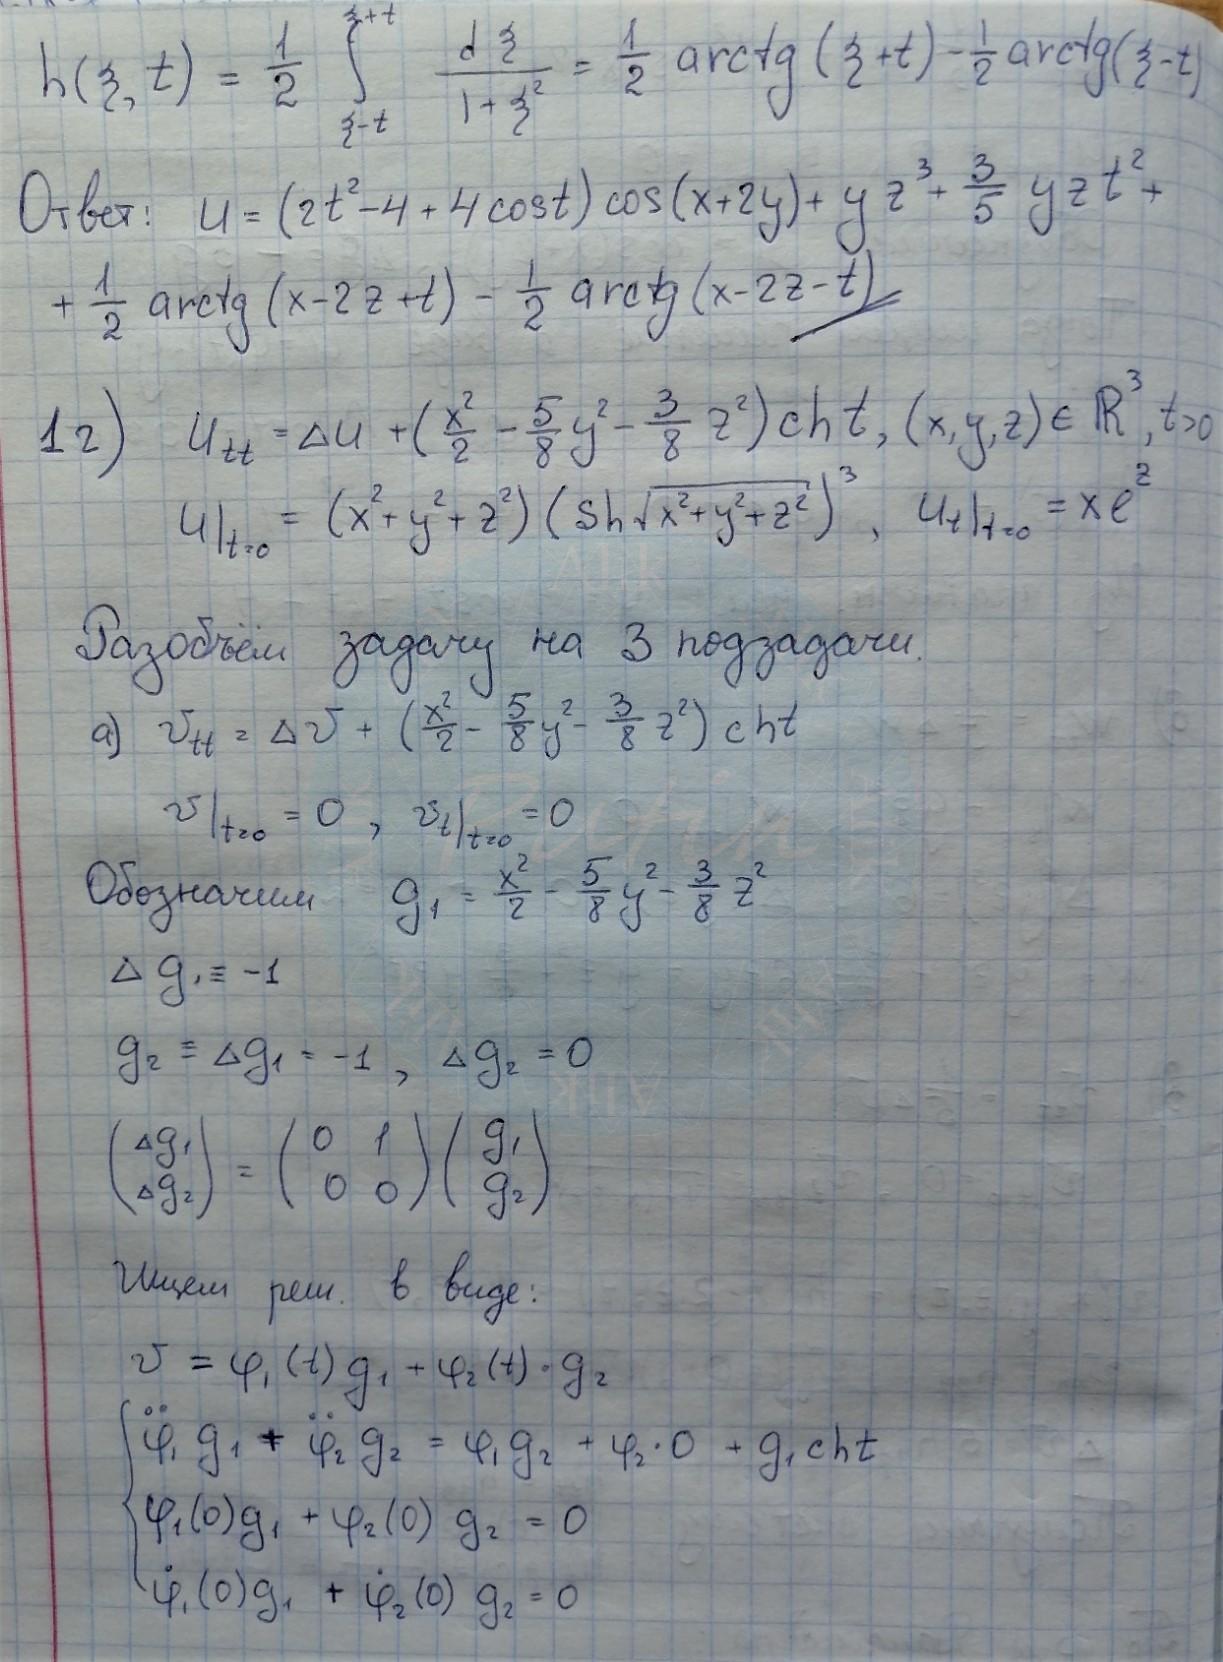 h(ξ, t) = 1/2 ∫_{ξ-t}^{ξ+t} dξ/(1+ξ²) = 1/2 arctg (ξ+t) - 1/2 arctg(ξ-t)
Ответ: u = (2t² - 4 + 4cost) cos(x+2y) + yz³ + 3/5 yzt² +
+ 1/2 arctg (x-2z+t) - 1/2 arctg (x-2z-t)
12) u_tt = Δu + (x²/2 - 5/8 y² - 3/8 z²) ch t, (x,y,z) ∈ ℝ³, t>0
u|_{t=0} = (x²+y²+z²) (sh √(x²+y²+z²))³, u_t|_{t=0} = xe^z
Разобъём задачу на 3 подзадачи.
а) v_tt = Δv + (x²/2 - 5/8 y² - 3/8 z²) ch t
v|_{t=0} = 0, v_t|_{t=0} = 0
Обозначим g₁ = x²/2 - 5/8 y² - 3/8 z²
Δg₁ ≡ -1
g₂ ≡ Δg₁ = -1, Δg₂ = 0
(Δg₁ Δg₂) = (0 1 0 0) (g₁ g₂)
Ищем реш. в виде:
v = φ₁(t) g₁ + φ₂(t)·g₂
φ̈₁ g₁ + φ̈₂ g₂ = φ₁g₂ + φ₂·0 + g₁ch t
φ₁(0)g₁ + φ₂(0) g₂ = 0
φ̇₁(0)g₁ + φ̇₂(0) g₂ = 0